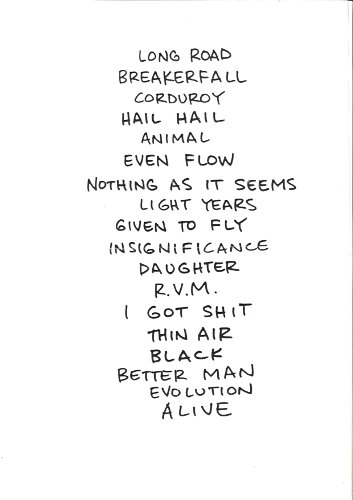 LONG ROAD
BREAKERFALL
CORDUROY
HAIL HAIL
ANIMAL
EVEN FLOW
NOTHING AS IT SEEMS
LIGHT YEARS
GIVEN TO FLY
INSIGNIFICANCE
DAUGHTER
R.V.M.
I GOT SHIT
THIN AIR
BLACK
BETTER MAN
EVOLUTION
ALIVE